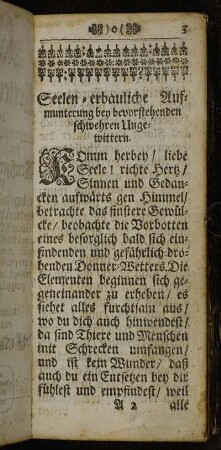 )o( 3
Seelen-erbauliche Auf-
munterung bey bevorstehenden
schwehren Unge-
wittern.
KOmm herbey/ liebe
Seele! richte Hertz/
Sinnen und Gedan-
cken aufwärts gen Himmel/
betrachte das finstere Gewül-
cke/ beobachte die Vorbotten
eines besorglich bald sich ein-
findenden und gefährlich-dro-
henden Donner-Wetters. Die
Elementen beginnen sich ge-
geneinander zu erheben/ es
siehet alles furchtsam aus/
wo du dich auch hinwendest/
da sind Thiere und Menschen
mit Schrecken umfangen/
und ist kein Wunder/ daß
auch du ein Entsetzen bey dir
fühlest und empfindest/ weil
A 2 alle